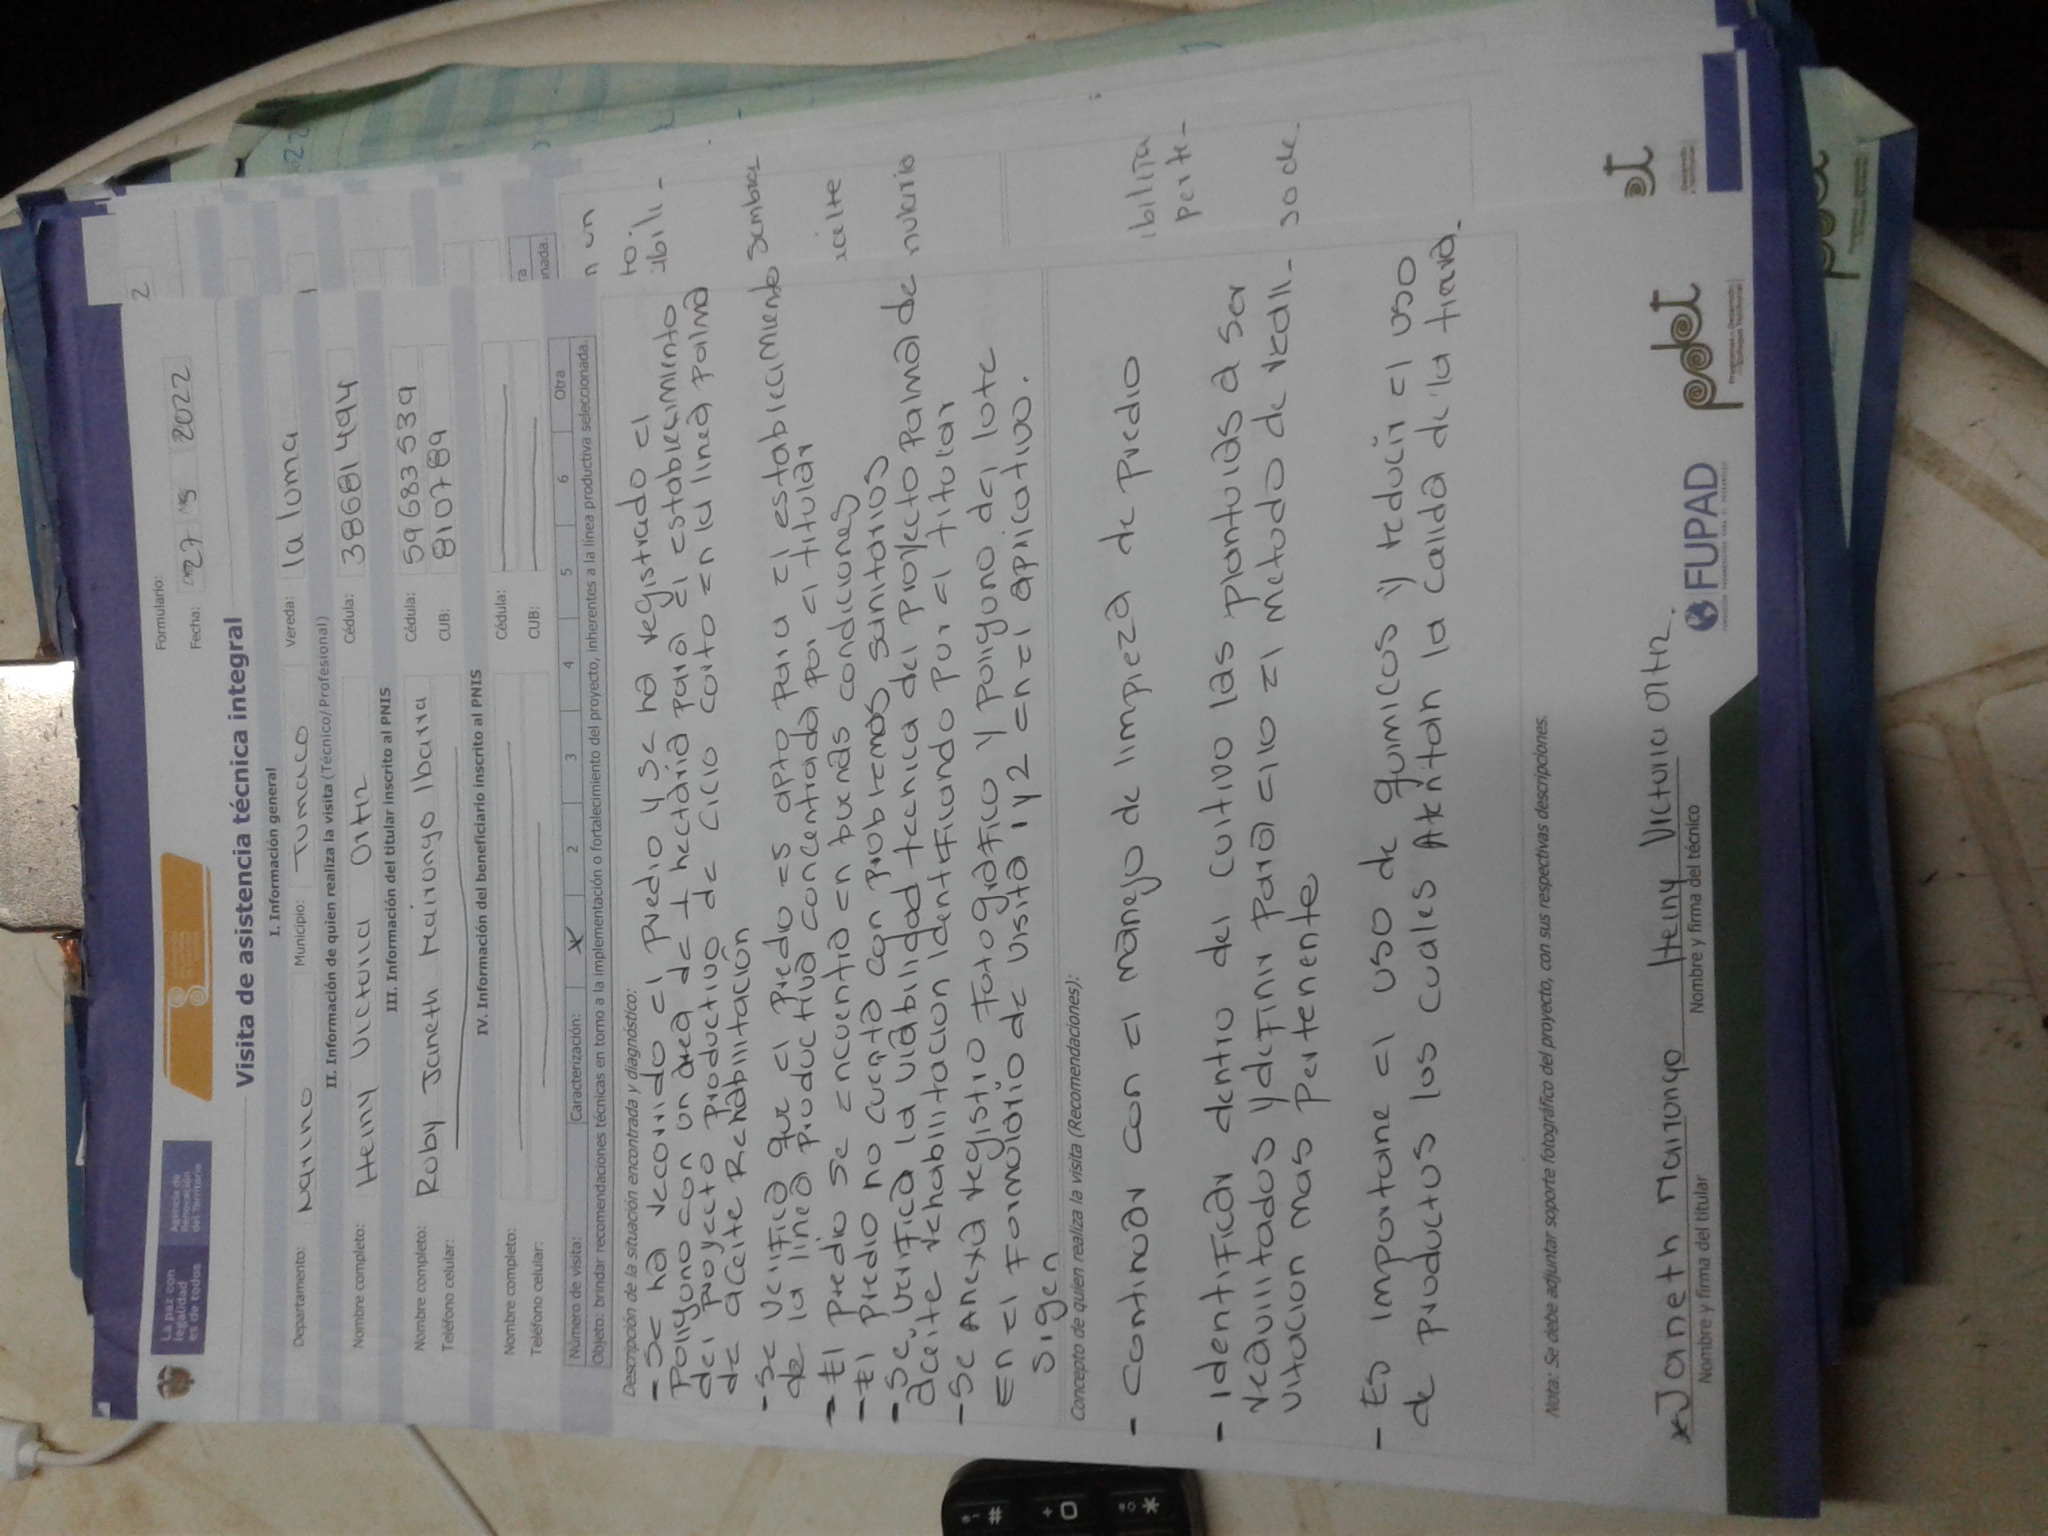 La paz con
legalidad
es de todos
Agencia de
Renovación
del Territorio
Formulario:
Fecha: 27 2022
Visita de asistencia técnica integral
I. Información general
Departamento: Nariño Municipio: Tumaco Vereda: la loma
II. Información de quien realiza la visita (Técnico/ Profesional)
Nombre completo: Heiny Victoria Ortiz Cédula: 38681494
III. Información del titular inscrito al PNIS
Nombre completo: Ruby Janeth Mairongo Ibarra Cédula: 59683539
Teléfono celular: CUB: 810789
IV. Información del beneficiario inscrito al PNIS
Nombre completo: Cédula:
Teléfono celular: CUB:
Número de visita: Caracterización: X 2 3 4 5 6 Otra
Objeto: brindar recomendaciones técnicas en torno a la implementación o fortalecimiento del proyecto, inherentes a la línea productiva seleccionada.
Descripción de la situación encontrada y diagnóstico:
- Se ha recorrido el predio y se ha registrado el
Poligono con un área de 1 hectária para el establecimiento
del proyecto productivo de ciclo corto en la linea palma
de aceite Rehabilitación
- Se verifica que el predio es apto para el establecimiento
de la linea productiva concentrada por el titular
- El predio se encuentra en buenas condiciones
- El predio no cuenta con problemas sanitarios
- Se verifica la viabilidad tecnica del proyecto palma de
aceite rehabilitacion identificando por el titular
- Se Anexa registro fotografico y poligono del lote
en el formulario de visita 1 y 2 en el aplicativo.
sigen
Concepto de quien realiza la visita (Recomendaciones):
- Continuar con el manejo de limpieza de predio
- Identificar dentro del cultivo las plantuias a ser
reavilitados y definir para ello el metodo de reali-
vitacion mas pertenente
- Es importane el uso de quimicos y reducir el uso
de productos los cuales Akntan la calida de la tierra.
Nota: Se debe adjuntar soporte fotográfico del proyecto, con sus respectivas descripciones.
x Janeth Mairongo Heiny Victoria Ortiz
Nombre y firma del titular Nombre y firma del técnico
FUPAD
pdet
Programas de Desarrollo
con Enfoque Territorial
2
n en
to.
abili-
sembra
aceite
nutario
ibilita
perte-
so de